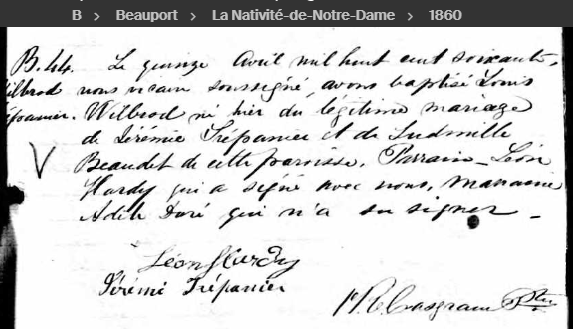 B > Beauport > La Nativité-de-Notre-Dame > 1860
B.44. Le quinze Avril mil huit cent soixante,
Wilbrod nous vicaire soussigné, avons baptisé Louis
Trépanier. Wilbrod né hier du légitime mariage
de Jérémie Trépanier et de Ludmille
Beaudet de cette paroisse. Parrain Léon
Hardy qui a signé avec nous, marraine
Adèle Doré qui n'a su signer _
Léon Hardy
Jérémi Trépanier
Casgrain Ptre